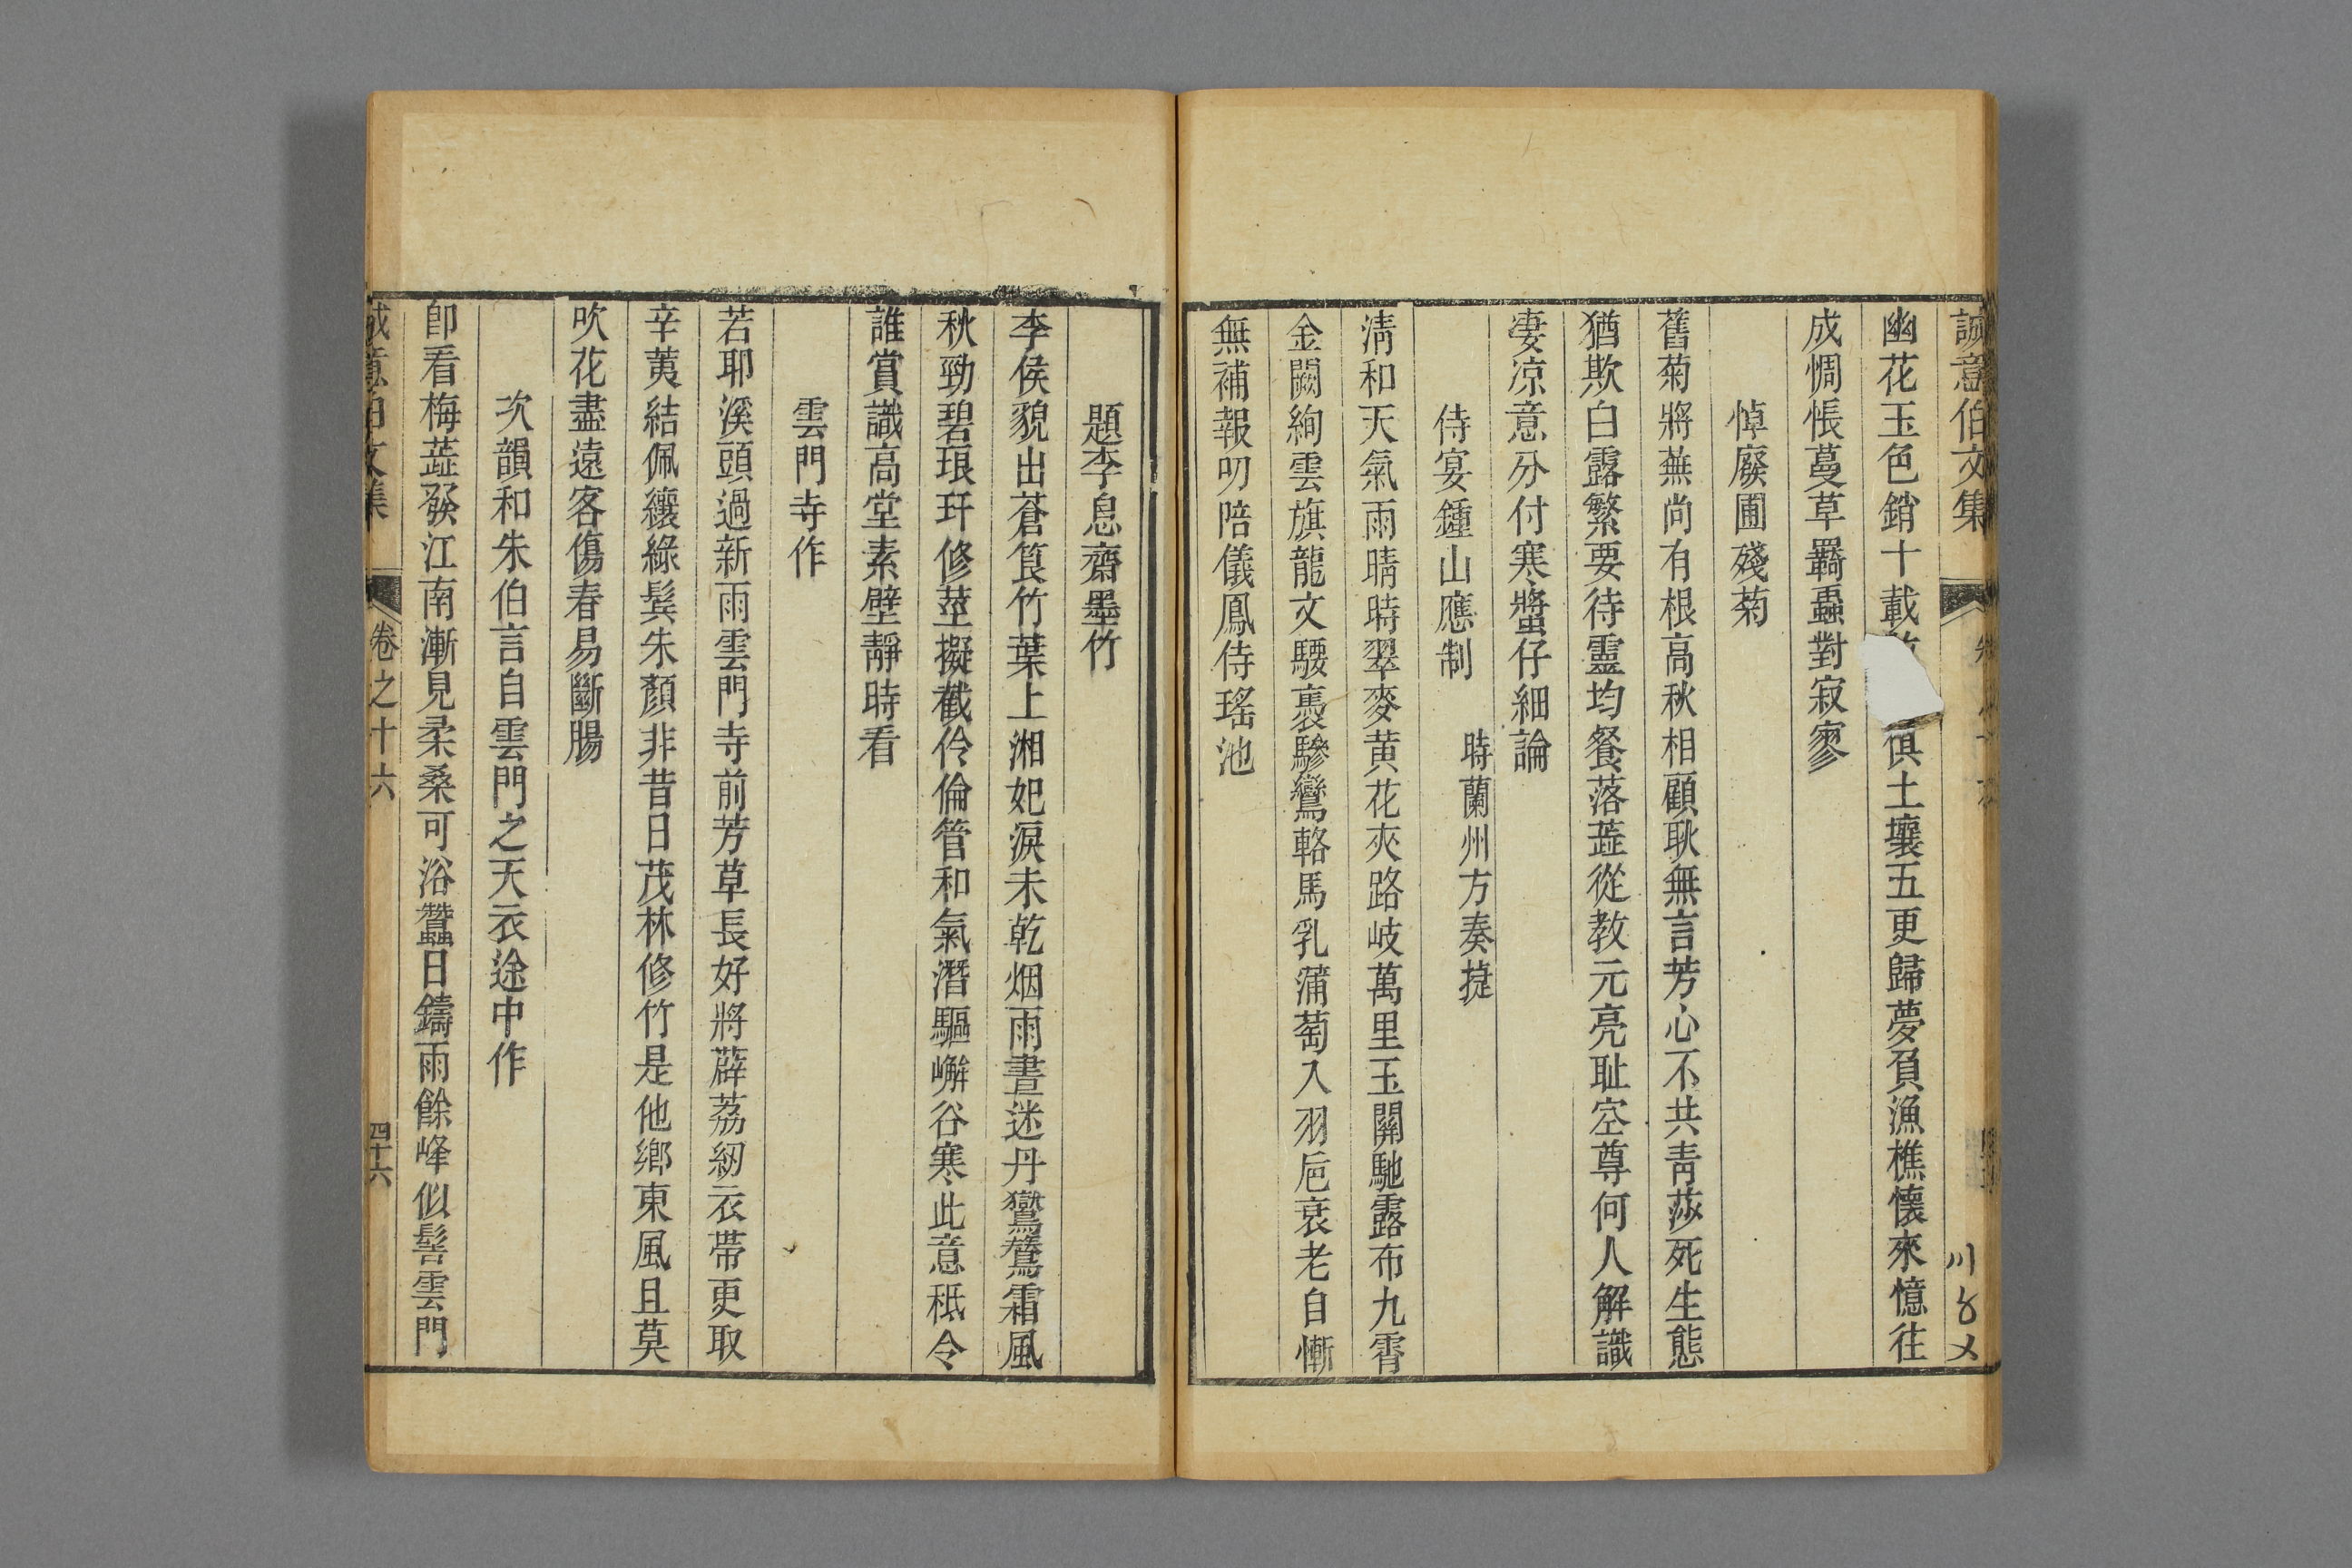 誠意伯文集
幽花玉色銷十載 俱土壤五更歸夢負漁樵懷來憶往
成惆悵蔓草羇蟲對寂寥
悼廢圃殘菊
舊菊將蕪尚有根高秋相顧耿無言芳心不共青莎死生態
猶欺白露繁要待靈均餐落蘂從教元亮耻空尊何人解識
凄凉意分付寒螿仔細論
侍宴鍾山應制 時蘭州方奏捷
清和天氣雨晴時翠麥黄花夾路岐萬里玉關馳露布九霄
金闕絢雲旗龍文騕褭驂鸞輅馬乳蒲萄入羽巵衰老自慚
無補報叨陪儀鳳侍瑤池
題李息齋墨竹
李侯貌出蒼筤竹葉上湘妃淚未乾烟雨晝迷丹鸑鷟霜風
秋勁碧琅玕修莖擬截伶倫管和氣潛驅嶰谷寒此意秪令
誰賞識高堂素壁靜時看
雲門寺作
若耶溪頭過新雨雲門寺前芳草長好將薜荔紉衣帶更取
辛荑結佩纕綠鬂朱顏非昔日茂林修竹是他鄉東風且莫
吹花盡遠客傷春易斷腸
次韻和朱伯言自雲門之天衣途中作
卽看梅蘂發江南漸見柔桑可浴蠶日鑄雨餘峰似髻雲門
誠意伯文集
卷之十六
四十六